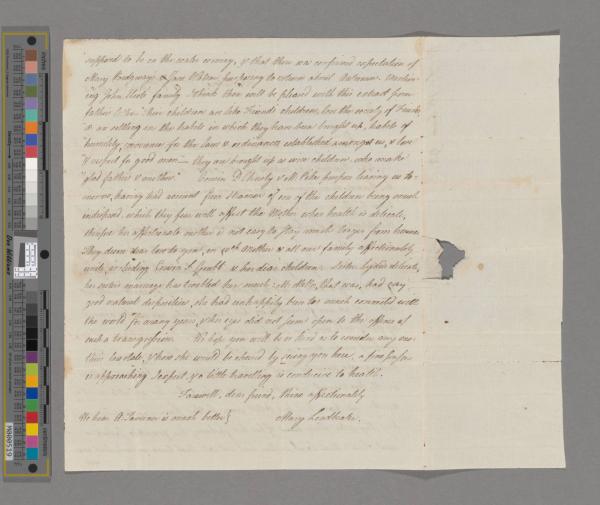 suppos'd to be on the water coming, & that there was confirmed expectation of
Mary Ridgway & Jane Watson purposing to return about Autumn. Mention-
ing John family I think thou will be pleased with this extract from
father "Their children are like Friends children, love the society of Friends,
& are settling in the habits in which they have been brought up, habits of
humility, reverence for the laws & ordinances established amongst us, & love
& respect for good men — they are brought up as wise children, who make
glad father & mother" D. Chanly & M. purpose leaving us to-
morrow, having had account from of one of the children being much
indisposed, which they fear will affect the Mother whose health is delicate,
therefore her affectionate mother is not easy to stay much longer from home
They desire dear love to you, in wch Mother & all our family affectionately
unite, including Grubb & her dear children. Sister Lydia delicate,
her sister's marriage has troubled her much. that was, had a very
good natural disposition, she had unhappily been too much connected with
the world for many years, & her eyes did not seem open to the offence of
such a transgression. We hope you will be so kind as to consider my mo-
ther's low state, & how she would be cheared by seeing you here, a fine season
is approaching I expect, & a little travelling is conducive to health.
Farewell, dear friend, thine affectionately
We hear A. is much better } Mary Leadbeater.
M000519